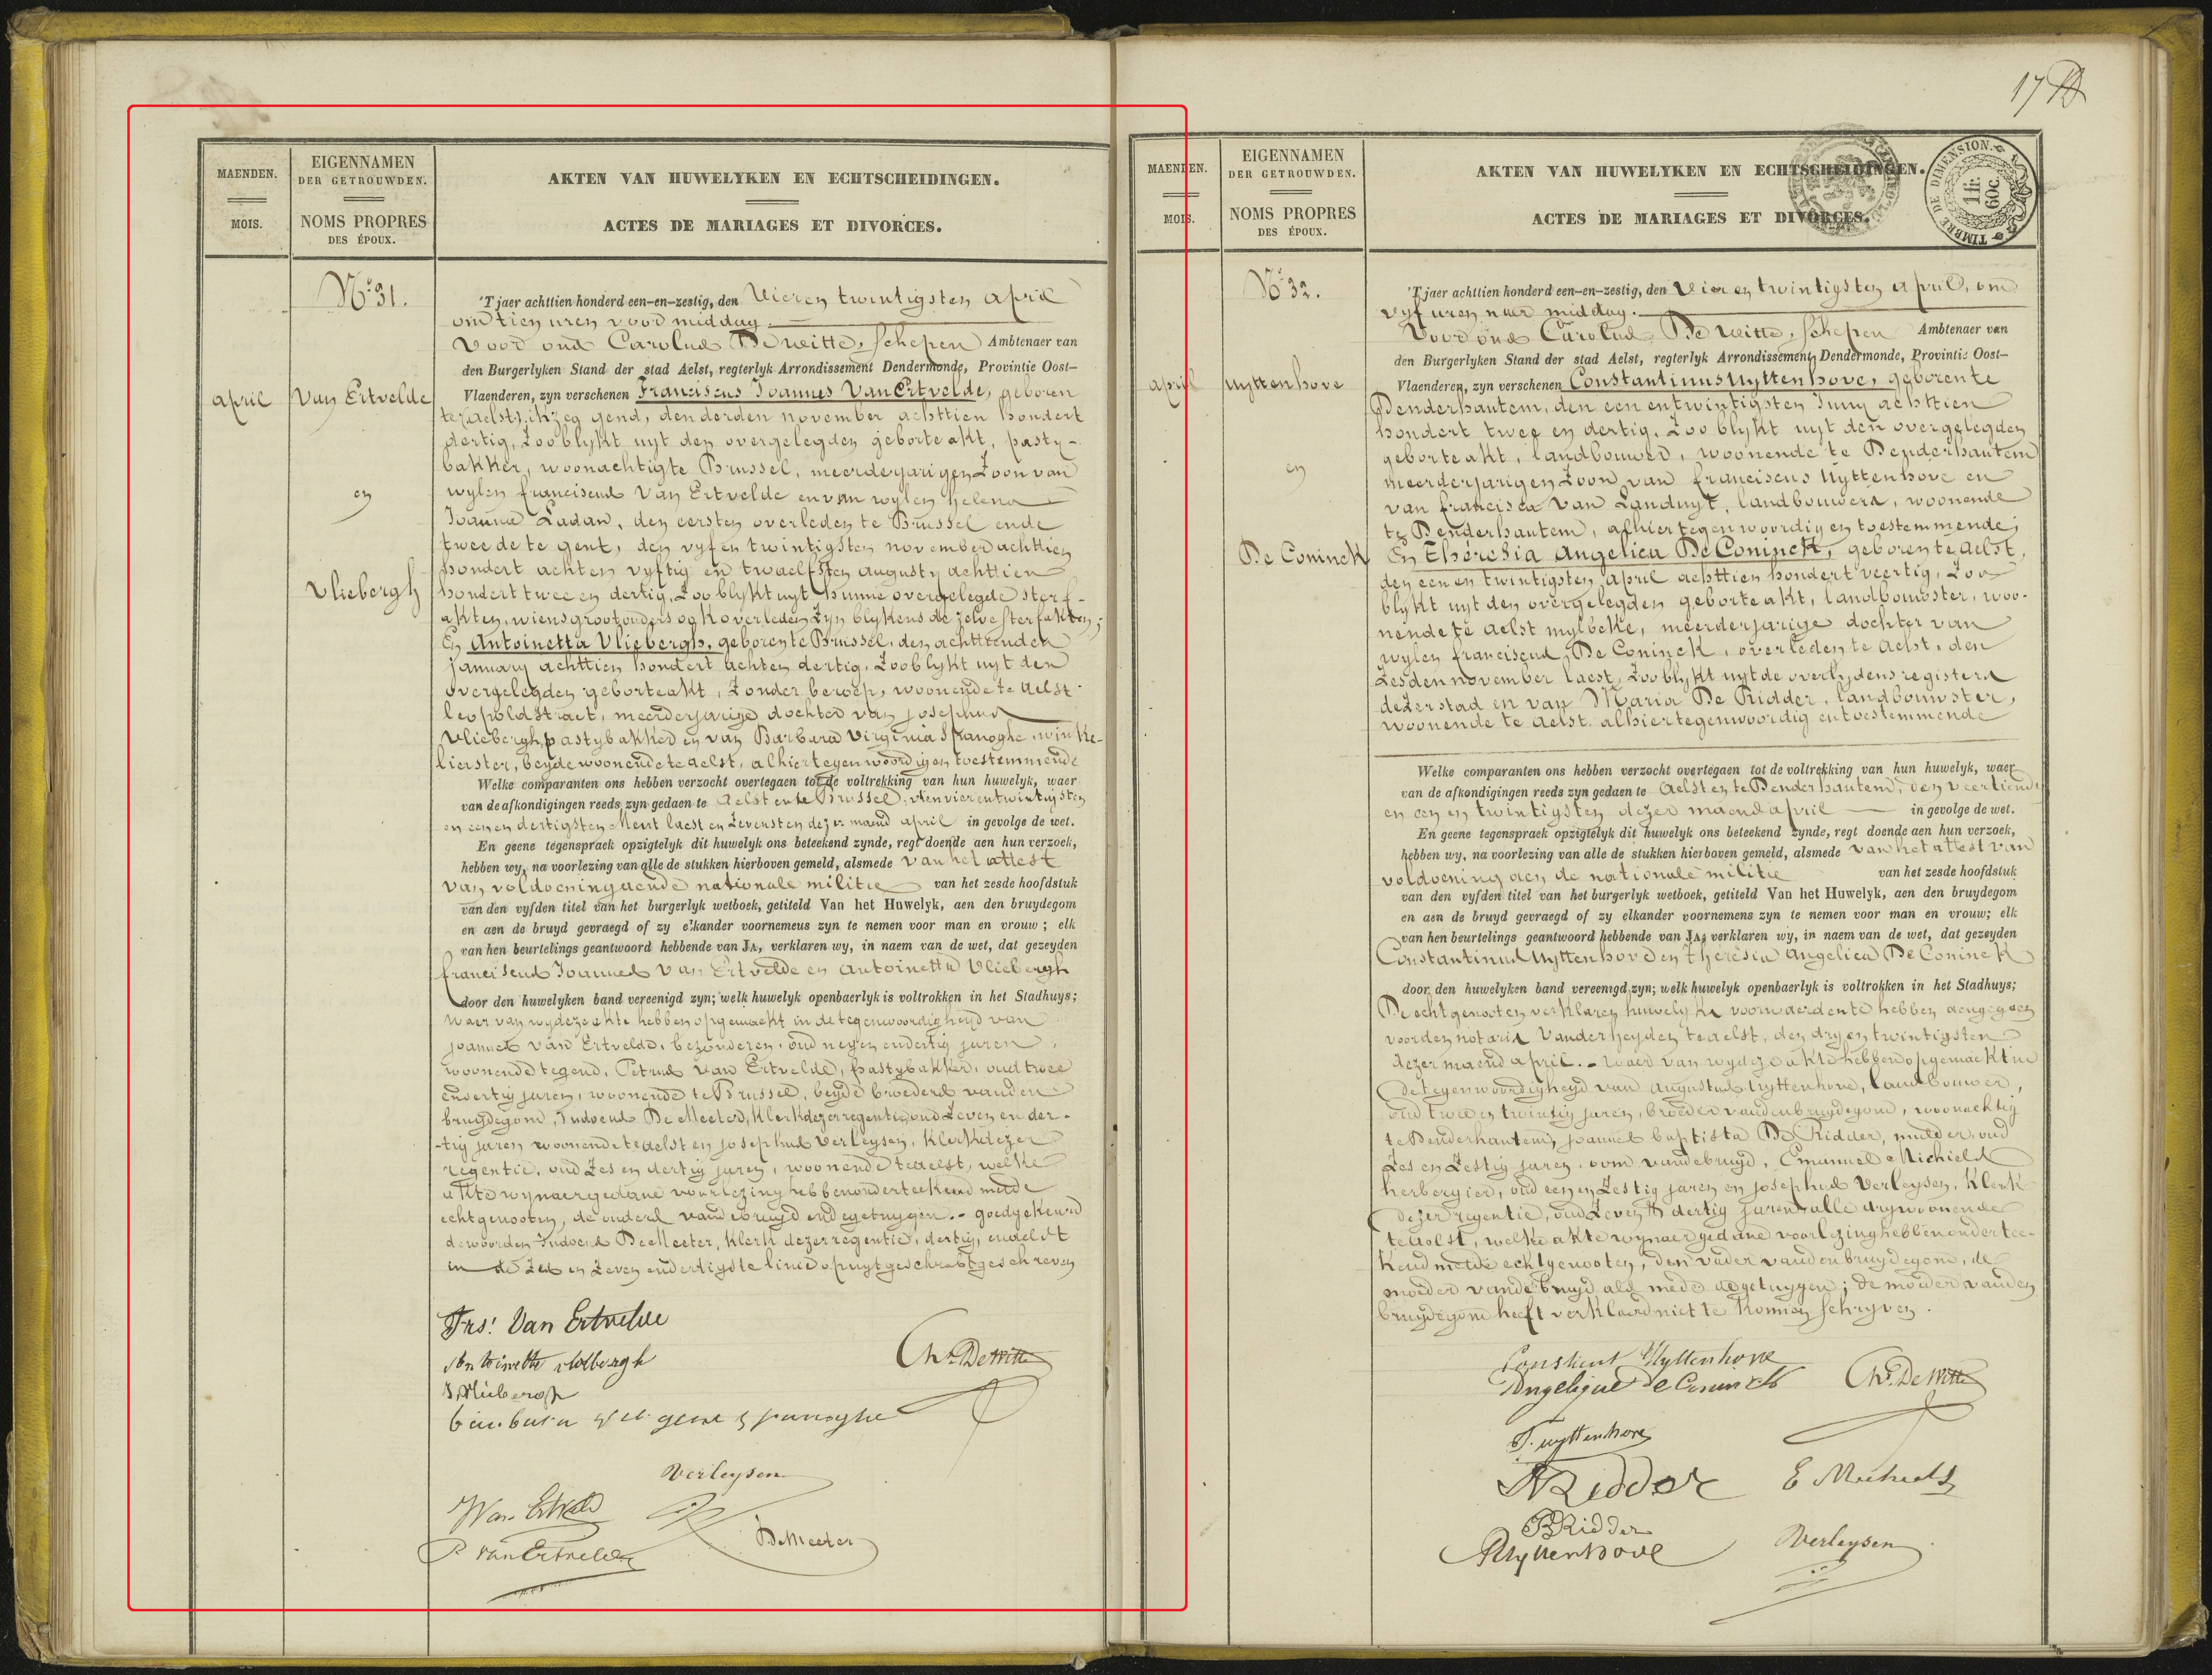 17
MAENDEN.
MOIS.
EIGENNAMEN
DER GETROUWDEN.
NOMS PROPRES
DES ÉPOUX.
AKTEN VAN HUWELYKEN EN ECHTSCHEIDINGEN.
ACTES DE MARIAGES ET DIVORCES.
April
No 31.
Van Ertvelde
en
Vliebergh
'T jaer achttien honderd een-en-zestig, den Vier en twintigsten April
om tien uren voor middag.
Voor ons Carolus De Witte, Schepen Ambtenaer van
den Burgerlyken Stand der stad Aelst, regterlyk Arrondissement Dendermonde, Provintie Oost-
Vlaenderen, zyn verschenen Franciscus Joannes Van Ertvelde, geboren
gend, den derden november achttien hondert
dertig, zoo blykt uyt den overgelegden geborteakt, pasty-
bakker, woonachtig te Brussel, meerderjarigen Zoon van
wylen franciscus Van Ertvelde en van wylen helena
Joanna Ladaw, den eersten overleden te Brussel en de
tweede te gent, den vyf en twintigsten november achttien
hondert acht en vyftig en twaelfsten augusty achttien
hondert twee en dertig, zoo blykt uyt hunne overgelegde sterf-
akten, wiens grootouders ook overleden zyn blykens de zelve sterfakten;
En Antoinetta Vliebergh, geboren te Brussel, den achttienden
january achttien hondert acht en dertig, zoo blykt uyt den
overgelegden geborteakt, zonder beroep, woonende te Aelst
leopoldstraet, meerderjarige dochter van josephus
Vliebergh, pastybakker en van Barbara Virginia Spanoghe, winke-
lierster, beyde woonende te aelst, alhier tegenwoordig en toestemmende
Welke comparanten ons hebben verzocht overtegaen tot de voltrekking van hun huwelyk, waer
van de afkondigingen reeds zyn gedaen te Aelst en te Brussel, den vier en twintigsten
en een en dertigsten Meert laest en zevensten dezer maend april in gevolge de wet.
En geene tegenspraek opzigtelyk dit huwelyk ons beteekend zynde, regt doende aen hun verzoek,
hebben wy, na voorlezing van alle de stukken hierboven gemeld, alsmede van het attest
van voldoening aen de nationale militie van het zesde hoofdstuk
van den vyfden titel van het burgerlyk wetboek, getiteld Van het Huwelyk, aen den bruydegom
en aen de bruyd gevraegd of zy elkander voornemens zyn te nemen voor man en vrouw; elk
van hen beurtelings geantwoord hebbende van JA, verklaren wy, in naem van de wet, dat gezeyden
franciscus Joannes Van Ertvelde en Antoinetta Vliebergh
door den huwelyken band vereenigd zyn; welk huwelyk openbaerlyk is voltrokken in het Stadhuys;
Waer van wy deze akte hebben opgemaekt in de tegenwoordigheyd van
joannes Van Ertvelde, bezonderen, oud negen en dertig jaren,
woonende te gend, Petrus Van Ertvelde, pastybakker, oud twee
en dertig jaren, woonende te Brussel, beyde broeders van den
bruydegom, Judocus De Meeter, klerk dezer regentie, oud zeven en der-
-tig jaren woonende te aelst en josephus Verleysen, klerk dezer
regentie, oud zes en dertig jaren, woonende te aelst, welke
akte wy naer gedane voorlezing hebben onderteekend met de
echtgenooten, de ouders van de bruyd en de getuygen. - goedgekeurd
de woorden Judocus De Meeter, klerk dezer regentie, dertig, en aelst
in de zes en zeven en dertigste linie op uytgeschrabt geschreven
Frs. Van Ertvelde
Antoinette vliebergh
J. Vliebergh
barbara spanoghe
Chs. De Witte
Verleysen
J Van Ertvelde
P. Van Ertvelde
De Meeter
MAENDEN.
MOIS.
EIGENNAMEN
DER GETROUWDEN.
NOMS PROPRES
DES ÉPOUX.
AKTEN VAN HUWELYKEN EN ECHTSCHEIDINGEN.
ACTES DE MARIAGES ET DIVORCES.
TIMBRE DE DIMENSION.
1 fr.
60c.
April
No 32.
Uyttenhove
en
De Coninck
'T jaer achttien honderd een-en-zestig, den Vier en twintigsten April, om
vyf uren naer middag.
Voor ons Carolus De Witte, Schepen Ambtenaer van
den Burgerlyken Stand der stad Aelst, regterlyk Arrondissement Dendermonde, Provintie Oost-
Vlaenderen, zyn verschenen Constantinus Uyttenhove, geboren te
Denderhautem, den een en twintigsten Juny achttien
hondert twee en dertig, zoo blykt uyt den overgelegden
geborteakt, landbouwer, woonende te Denderhautem
meerderjarigen Zoon van franciscus Uyttenhove en
van francisca Van Landuyt, landbouwers, woonende
te Denderhautem, alhier tegenwoordig en toestemmende;
En Theresia Angelica De Coninck, geboren te Aelst,
den een en twintigsten april achttien hondert veertig, zoo
blykt uyt den overgelegden geborteakt, landbouwster, woo-
nende te aelst mylbeke, meerderjarige dochter van
wylen franciscus De Coninck, overleden te Aelst, den
zesden november laest, zoo blykt uyt de overlydens registers
dezer stad en van Maria De Ridder, landbouwster,
woonende te aelst. alhier tegenwoordig en toestemmende
Welke comparanten ons hebben verzocht overtegaen tot de voltrekking van hun huwelyk, waer
van de afkondigingen reeds zyn gedaen te Aelst en te Denderhautem, den veertienden
en een en twintigsten dezer maend april in gevolge de wet.
En geene tegenspraek opzigtelyk dit huwelyk ons beteekend zynde, regt doende aen hun verzoek,
hebben wy, na voorlezing van alle de stukken hierboven gemeld, alsmede van het attest van
voldoening aen de nationale militie van het zesde hoofdstuk
van den vyfden titel van het burgerlyk wetboek, getiteld Van het Huwelyk, aen den bruydegom
en aen de bruyd gevraegd of zy elkander voornemens zyn te nemen voor man en vrouw; elk
van hen beurtelings geantwoord hebbende van JA, verklaren wy, in naem van de wet, dat gezeyden
Constantinus Uyttenhove en Theresia Angelica De Coninck
door den huwelyken band vereenigd zyn; welk huwelyk openbaerlyk is voltrokken in het Stadhuys;
De echtgenooten verklaren huwelyksche voorwaerden te hebben aengegaen
voor den notaris Vanderheyden te aelst, den dry en twintigsten
dezer maend april. - Waer van wy deze akte hebben opgemaekt in
de tegenwoordigheyd van Augustus Uyttenhove, landbouwer,
oud twee en twintig jaren, broeder van den bruydegom, woonachtig
te Denderhautem, joannes baptista De Ridder, mulder, oud
zes en zestig jaren, oom van de bruyd, Emanuel Michiels
herbergier, oud een en zestig jaren en josephus Verleysen, klerk
dezer regentie, oud zeven dertig jaren, alle dry woonende
te aelst, welke akte wy naer gedane voorlezing hebben ondertee-
kend met de echtgenooten, den vader van den bruydegom, de
moeder van de bruyd als mede de getuygen; de moeder van den
bruydegom heeft verklaerd niet te konnen schryven.
Constant Uyttenhove
Angelique De Coninck
Chs. De Witte
F. uyttenhove
E Michiels
B Ridder
A Uyttenhove
Verleysen